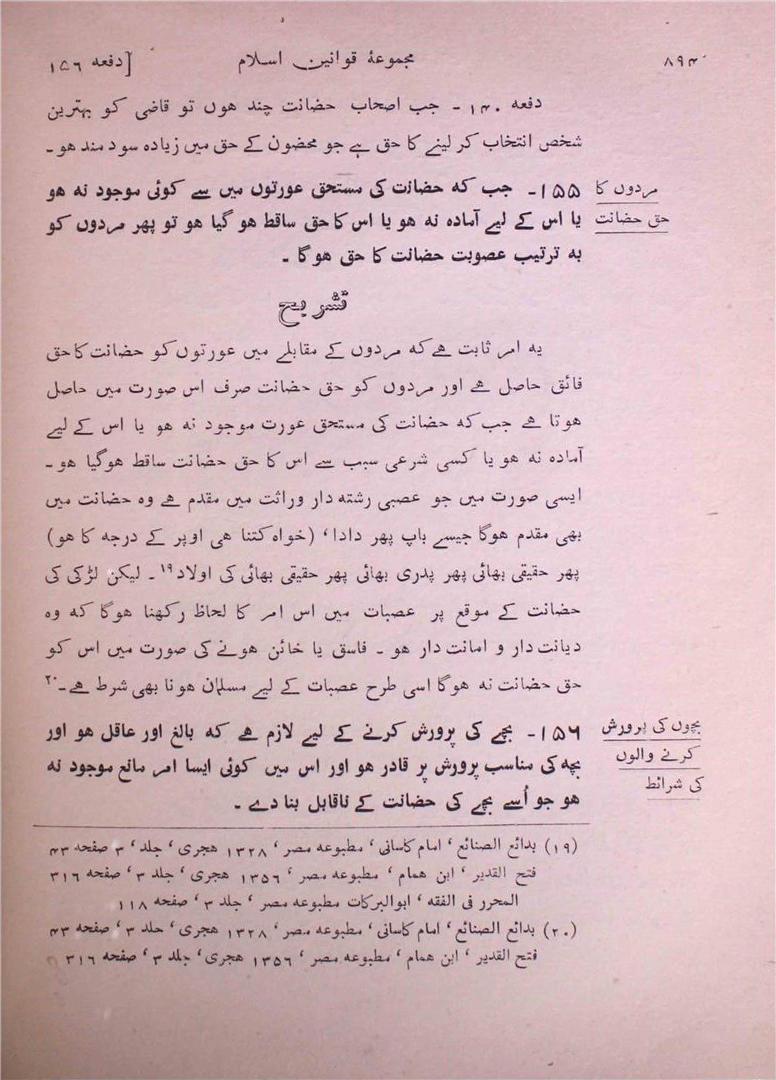 ۸۹۴ مجموعۂ قوانین اسلام [دفعہ ۱۵۶
دفعہ ۱۴۰ - جب اصحاب حضانت چند ہوں تو قاضی کو بہترین
شخص انتخاب کر لینے کا حق ہے جو محضون کے حق میں زیادہ سود مند ہو ۔
مردوں کا
حق حضانت
۱۵۵ - جب کہ حضانت کی مستحق عورتوں میں سے کوئی موجود نہ ہو
یا اس کے لیے آمادہ نہ ہو یا اس کا حق ساقط ہو گیا ہو تو پھر مردوں کو
بہ ترتیب عصوبت حضانت کا حق ہوگا ۔
تشریح
یہ امر ثابت ہے کہ مردوں کے مقابلے میں عورتوں کو حضانت کا حق
فائق حاصل ہے اور مردوں کو حق حضانت صرف اس صورت میں حاصل
ہوتا ہے جب کہ حضانت کی مستحق عورت موجود نہ ہو یا اس کے لیے
آمادہ نہ ہو یا کسی شرعی سبب سے اس کا حق حضانت ساقط ہوگیا ہو ۔
ایسی صورت میں جو عصبی رشتہ دار وراثت میں مقدم ہے وہ حضانت میں
بھی مقدم ہوگا جیسے باپ پھر دادا، (خواہ کتنا ہی اوپر کے درجہ کا ہو)
پھر حقیقی بھائی پھر پدری بھائی پھر حقیقی بھائی کی اولاد۱۹ ۔ لیکن لڑکی کی
حضانت کے موقع پر عصبات میں اس امر کا لحاظ رکھنا ہوگا کہ وہ
دیانت دار و امانت دار ہو ۔ فاسق یا خائن ہونے کی صورت میں اس کو
حق حضانت نہ ہوگا اسی طرح عصبات کے لیے مسلمان ہونا بھی شرط ہے ۔۲۰
بچوں کی پرورش
کرنے والوں
کی شرائط
۱۵۶ - بچے کی پرورش کرنے کے لیے لازم ہے کہ بالغ اور عاقل ہو اور
بچہ کی مناسب پرورش پر قادر ہو اور اس میں کوئی ایسا امر مانع موجود نہ
ہو جو اُسے بچے کی حضانت کے ناقابل بنا دے ۔
(۱۹) بدائع الصنائع، امام کاسانی، مطبوعہ مصر، ۱۳۲۸ ہجری، جلد، ۳ صفحہ ۴۳
فتح القدیر، ابن ہمام، مطبوعہ مصر، ۱۳۵۶ ہجری، جلد ۳، صفحہ ۳۱۶
المحرر فی الفقہ، ابوالبرکات مطبوعہ مصر، جلد ۳، صفحہ ۱۱۸
(۲۰) بدائع الصنائع، امام کاسانی، مطبوعہ مصر، ۱۳۲۸ ہجری، جلد ۳، صفحہ ۴۳
فتح القدیر، ابن ہمام، مطبوعہ مصر، ۱۳۵۶ ہجری، جلد ۳، صفحہ ۳۱۶